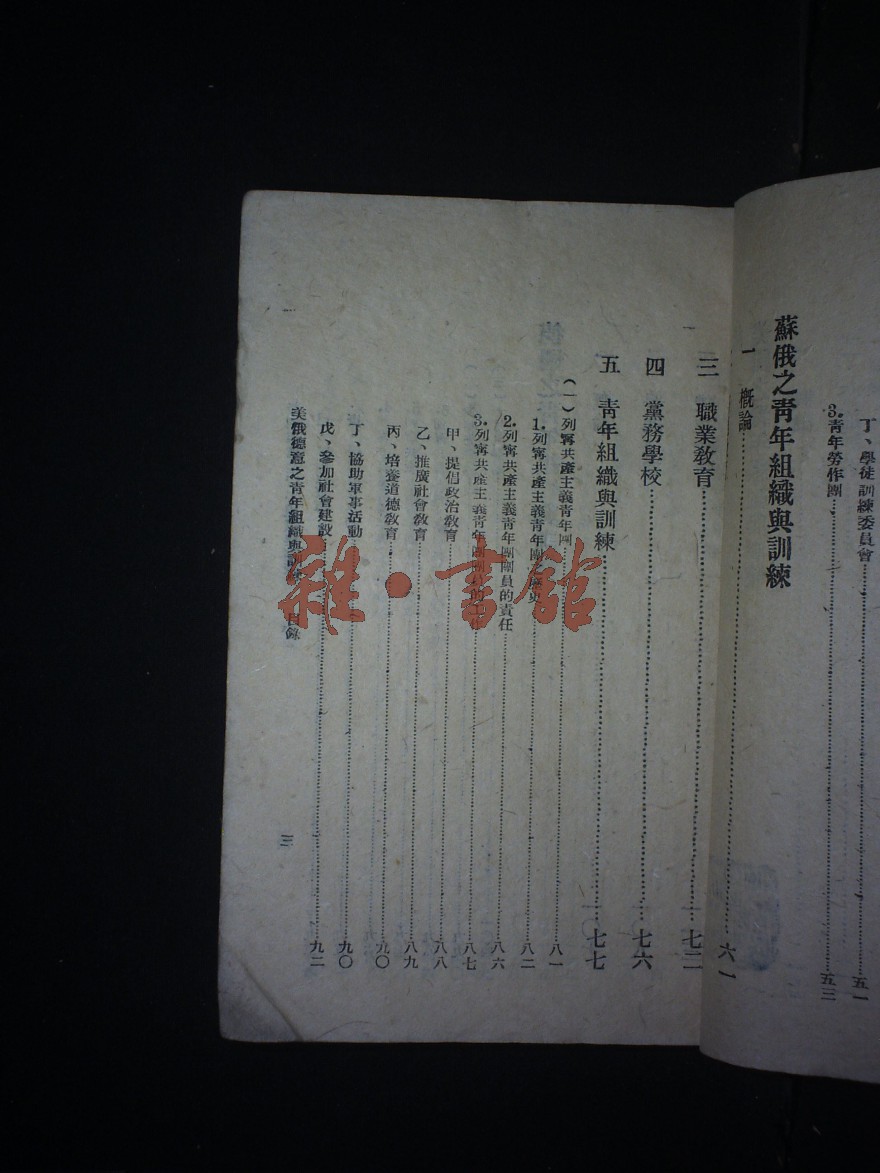 丁、學徒訓練委員會……五一
3.青年勞作團……五三
蘇俄之青年組織與訓練
一 概論……六一
三 職業教育……七二
四 黨務學校……七六
五 青年組織與訓練……七七
（一）列寧共產主義青年團……八一
1.列寧共產主義青年團之
……八二
2.列寧共產主義青年團團員的責任……八六
3.列寧共產主義青年團團員的
……八七
甲、提倡政治教育……八八
乙、推廣社會教育……八九
丙、培養道德教育……九〇
丁、協助軍事活動……九〇
戊、參加社會建設……九二
美俄德意之青年組織與訓練 目錄 三
雜·書館